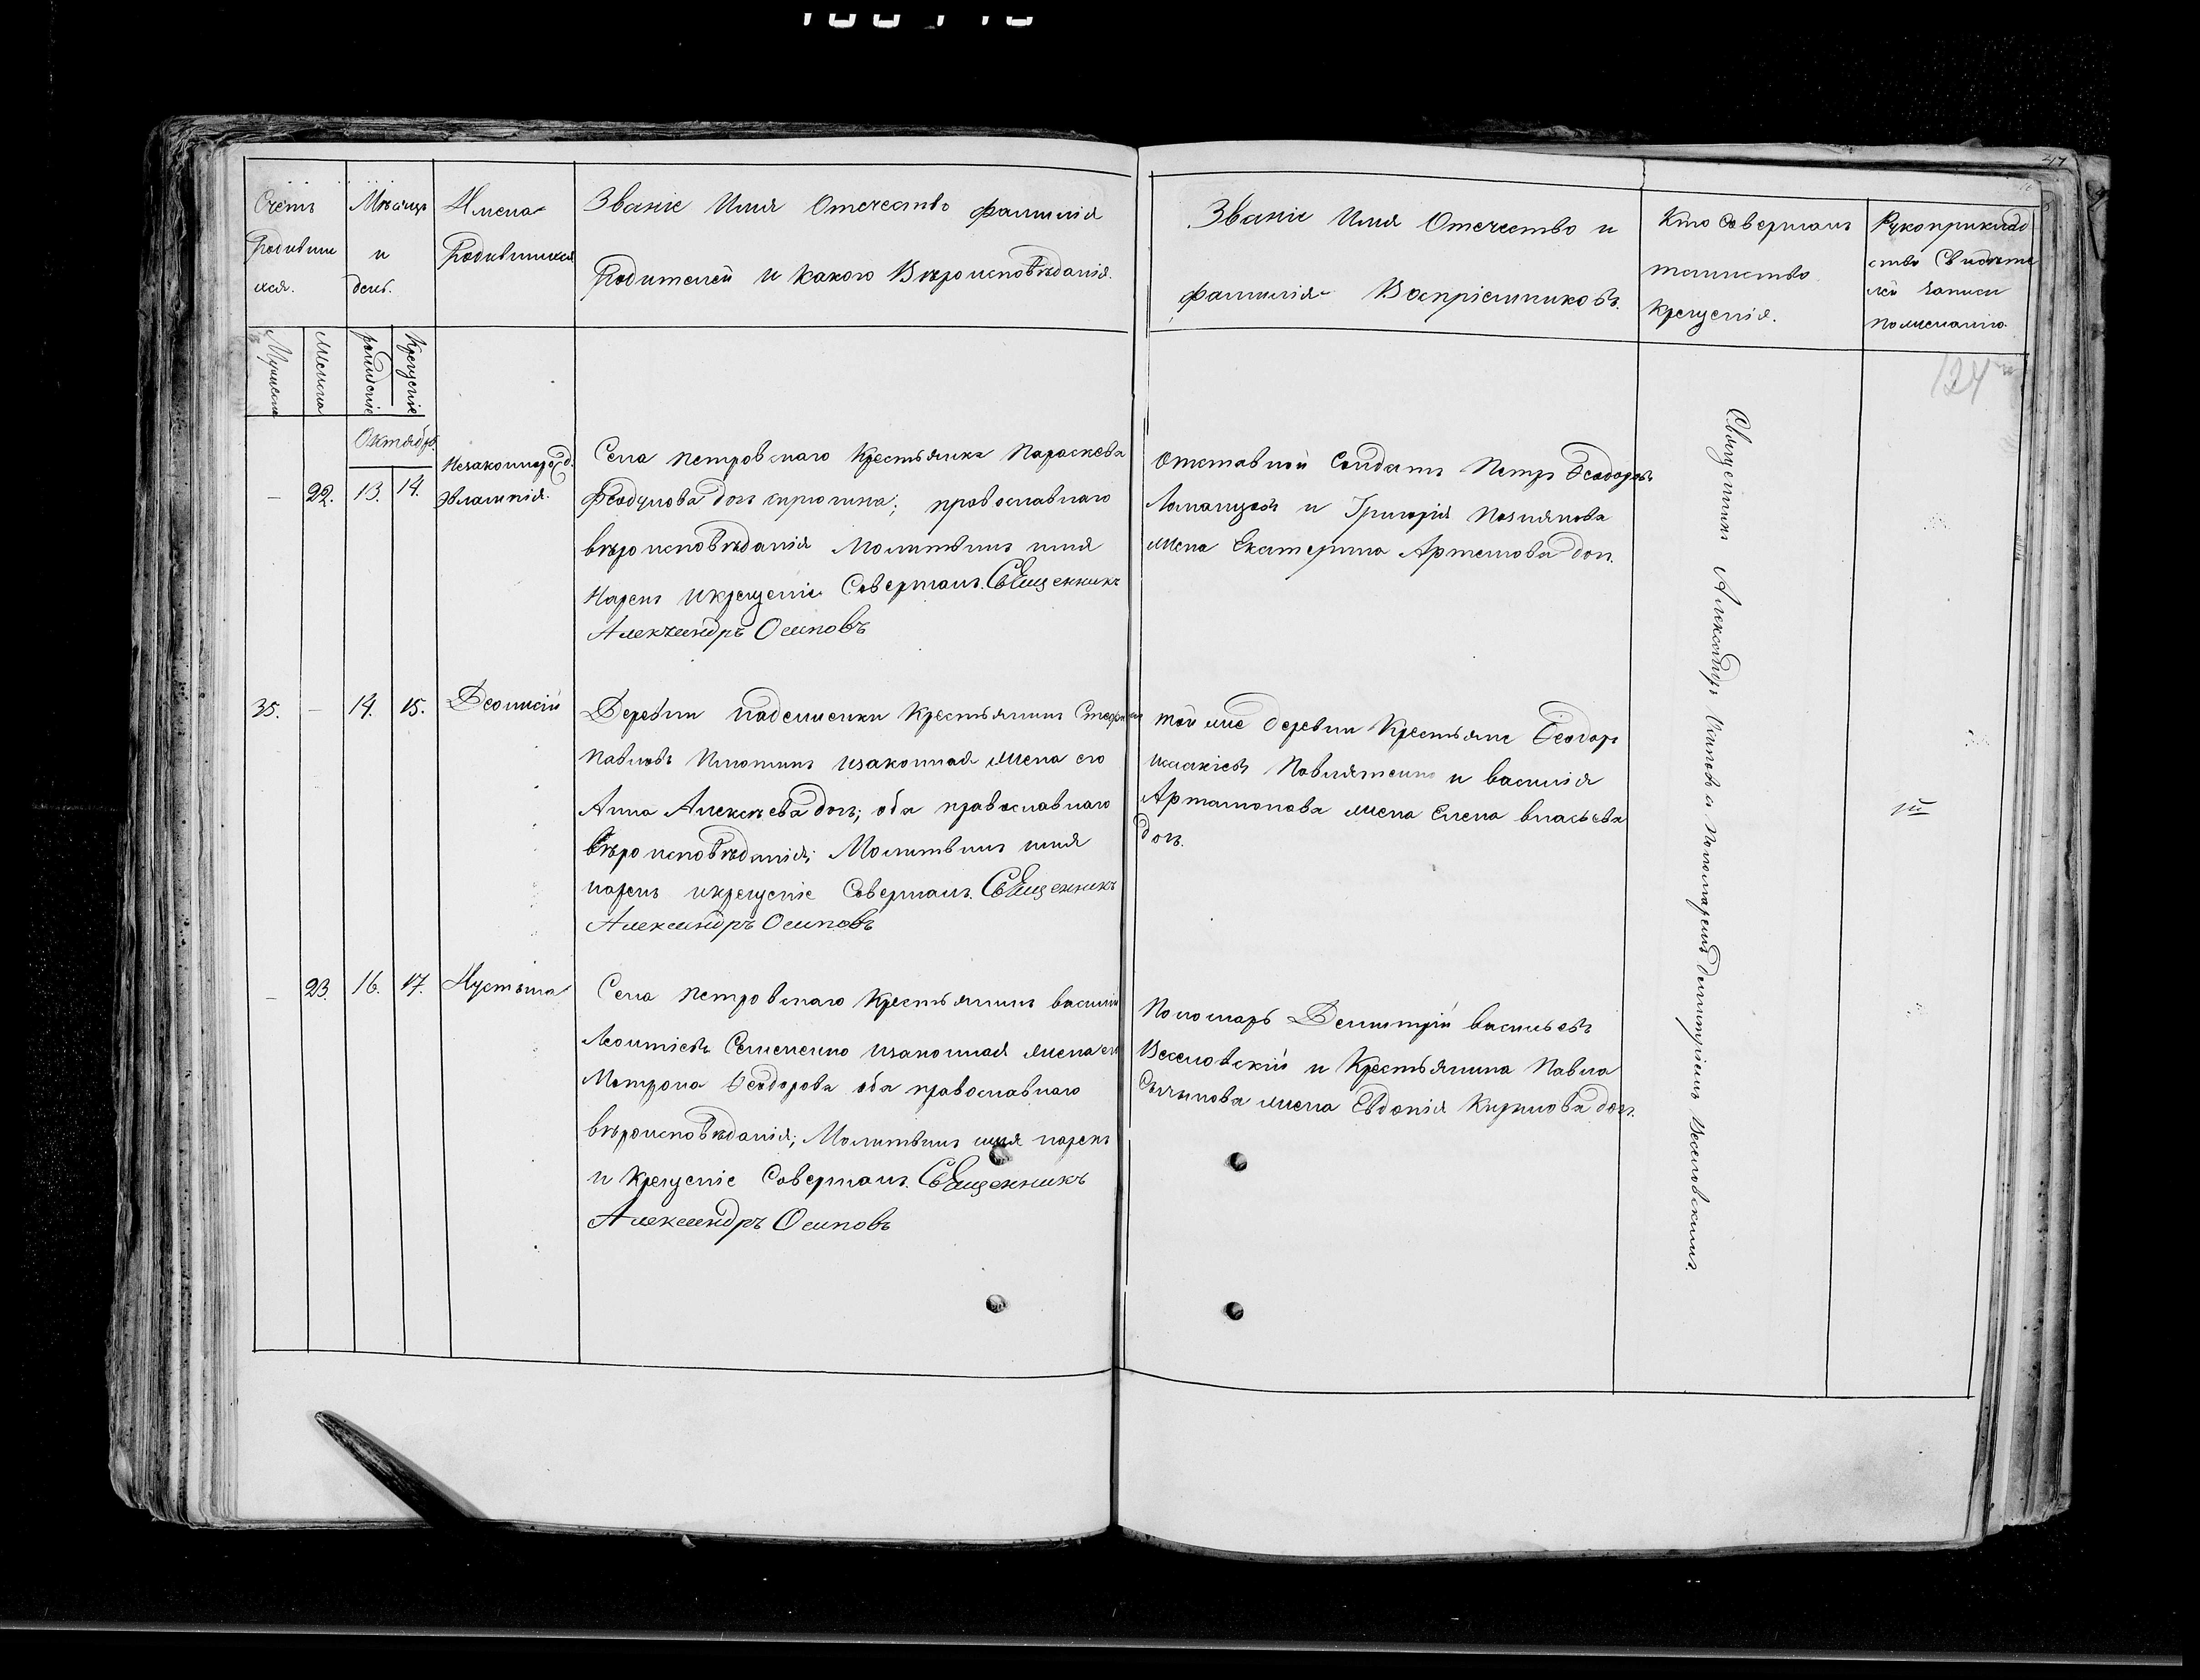 Счетъ
родивши
хся.
Мѣсяцъ
и
день.
Имена
Родившихся
Званіе Имя Отечество фамилія
Родителей и какого Вѣроисповѣданія.
Званіе Имя Отечество и
фамилія Воспріемниковъ.
Кто совершалъ
таинство
крещенія.
Рукоприклад
ство Свидѣте
лей записи
по желанію.
Мужеска
Женска
рожденіе
Крещеніе
124
Октябрь.
— 22. 13. 14.
Незаконнорожд.
Евлампія.
Села Петровскаго Крестьянка Параскева
Феодулова дочь; православнаго
вѣроисповѣданія Молитвин имя
Нареч и крещеніе Совершалъ. Священникъ
Александръ Осиповъ
Отставной Солдатъ Петръ Феодоровъ
и Григорія Познякова
жена Екатерина Артемова доч.
35. — 14. 15. Деонисій
Деревни Надеждинки Крестьянинъ Стефанъ
Павловъ и законная жена его
Анна Алексѣева дочь; оба православнаго
вѣроисповѣданія; Молитвин имя
нареч и крещеніе Совершалъ. Священникъ
Александръ Осиповъ
той же деревни Крестьяне Феодоръ
и василія
Артамонова жена Елена власьева
доч.
— 23. 16. 17. Иустина
Села Петровскаго Крестьянинъ василій
Леонтіевъ Семененко и законная жена его
Матрона Феодорова оба православнаго
вѣроисповѣданія; Молитвин имя нареч
и Крещеніе Совершалъ. Священникъ
Александръ Осиповъ
Пономарь Демитрій васильевъ
Веселовскій и Крестьянина Павла
жена Евдокія Кирилова доч.
Священникъ Александръ Осиповъ съ Пономаремъ Демитріемъ Веселовскимъ.